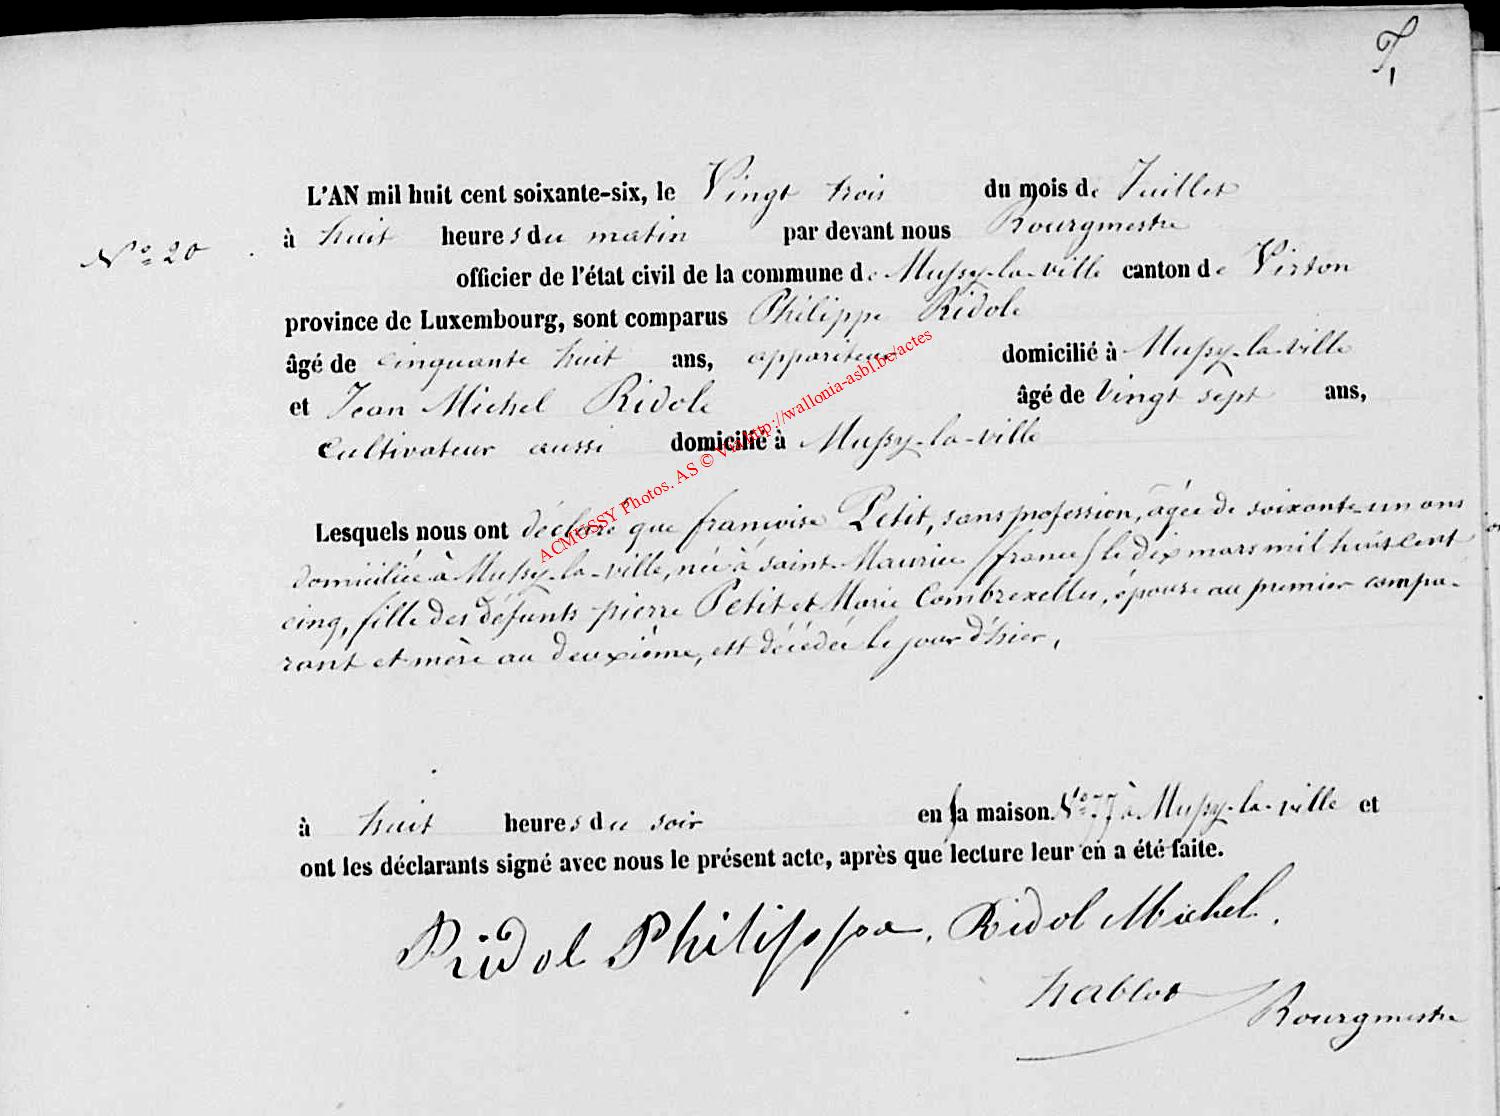 T,
L'AN mil huit cent soixante-six, le Vingt trois du mois de Juillet
N° 20 à huit heures du matin par devant nous Bourgmestre
officier de l'état civil de la commune de Mussy-la-ville canton de Virton
province de Luxembourg, sont comparus Philippe Ridole
âgé de cinquante huit ans, appariteur domicilié à Mussy-la-ville
et Jean Michel Ridole âgé de Vingt sept ans,
Cultivateur aussi domicilié à Mussy-la-ville
ACMUSSY Photos. AS © Via http://wallonia-asbl.be/actes
Lesquels nous ont déclaré que françoise Petit, sans profession, âgée de soixante un ans
domiciliée à Mussy-la-ville, née à saint-Maurice (france) le dix mars mil huit cent
cinq, fille des défunts pierre Petit et Marie Combrexelles, épouse au premier compa-
rant et mère au deuxième, est décédée le jour d'hier,
à huit heures du soir en sa maison N° 77 à Mussy-la-ville et
ont les déclarants signé avec nous le présent acte, après que lecture leur en a été faite.
Ridol Philippe, Ridol Michel.
hablot Bourgmestre